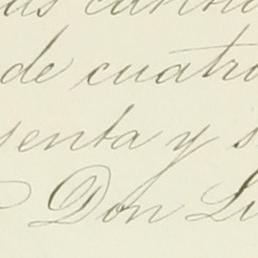 de cuatro
senta y s
Don Lu